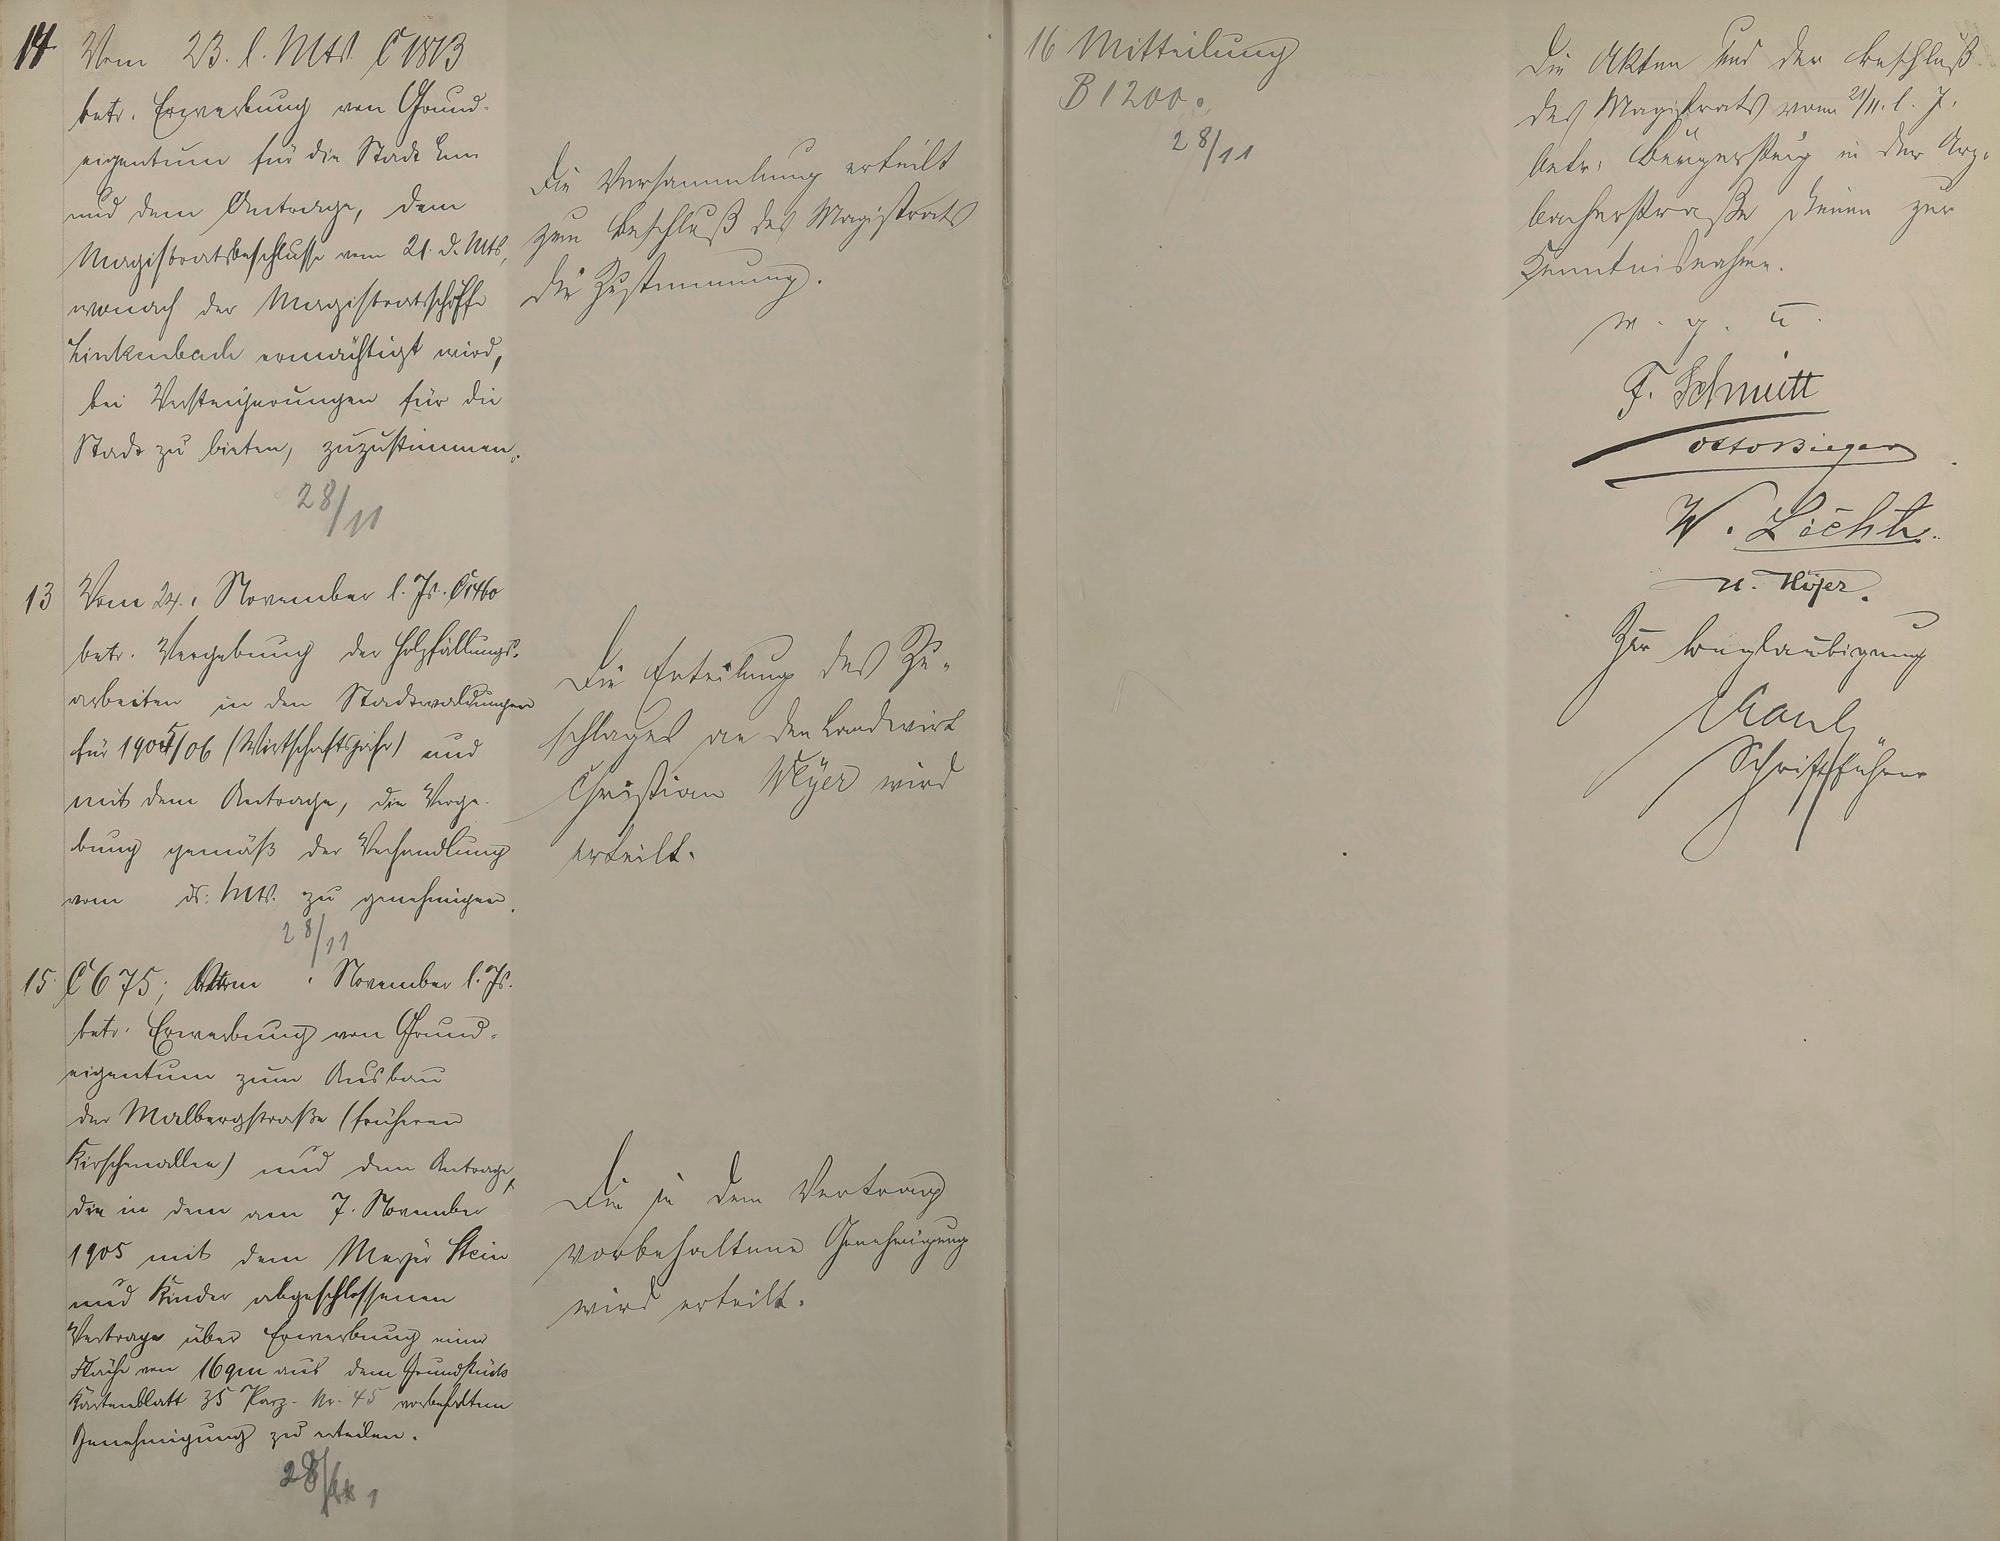 14 Vom 23. l. Mts. C 1813
betr. Erwerbung von Grund-
eigentum für die Stadt Ems
und dem Antrage, dem
Magistratsbeschlusse vom 21. d. Mts,
wonach der Magistratsschöffe
Linkenbach ermächtigt wird,
bei Versteigerungen für die
Stadt zu bieten, zuzustimmen.
28/11
Die Versammlung erteilt
zum Beschluß des Magistrats
die Zustimmung.
13 Vom 24. November l. Js. C 1460
betr. Vergebung der Holzfällungs-
arbeiten in den Stadtwaldungen
für 1905/06 (Wirtschaftsjahr) und
mit dem Antrage, die Verge-
bung gemäß der Verhandlung
vom ds. Mts. zu genehmigen.
28/11
Die Erteilung des Zu-
schlages an den Landwirt
Christian Meyer wird
erteilt.
15 C 675; Vom November l. Js.
betr. Erwerbung von Grund-
eigentum zum Ausbau
der Malbergstraße (früheren
Kirschenallee) und dem Antrage,
die in dem am 7. November
1905 mit dem Meyer Stein
und Kinder abgeschlossenen
Vertrage über Erwerbung einer
Fläche von 16 qm aus dem Grundstück
Kartenblatt 35 Parz. Nr. 45 vorbehaltene
Genehmigung zu erteilen.
28/11
Die in dem Vertrag
vorbehaltene Genehmigung
wird erteilt.
16 Mitteilung
B 1200.
28/11
Die Akten und der Beschluß
des Magistrats vom 21/11. l. J.
betr. Bürgersteig in der Arz-
bacherstraße dienen zur
Kenntnisnahme.
v. g. u.
F. Schmitt
Otto Bieger
W. Licht
Zur Beglaubigung
Kaul
Schriftführer